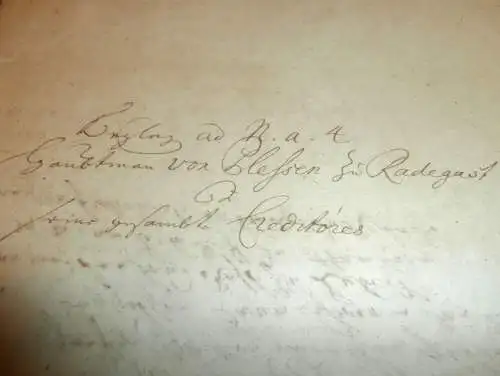 Beylag ad N. a. 4
Haubtman von Plessen zu Radegast
Ct
seine gesambte Creditores